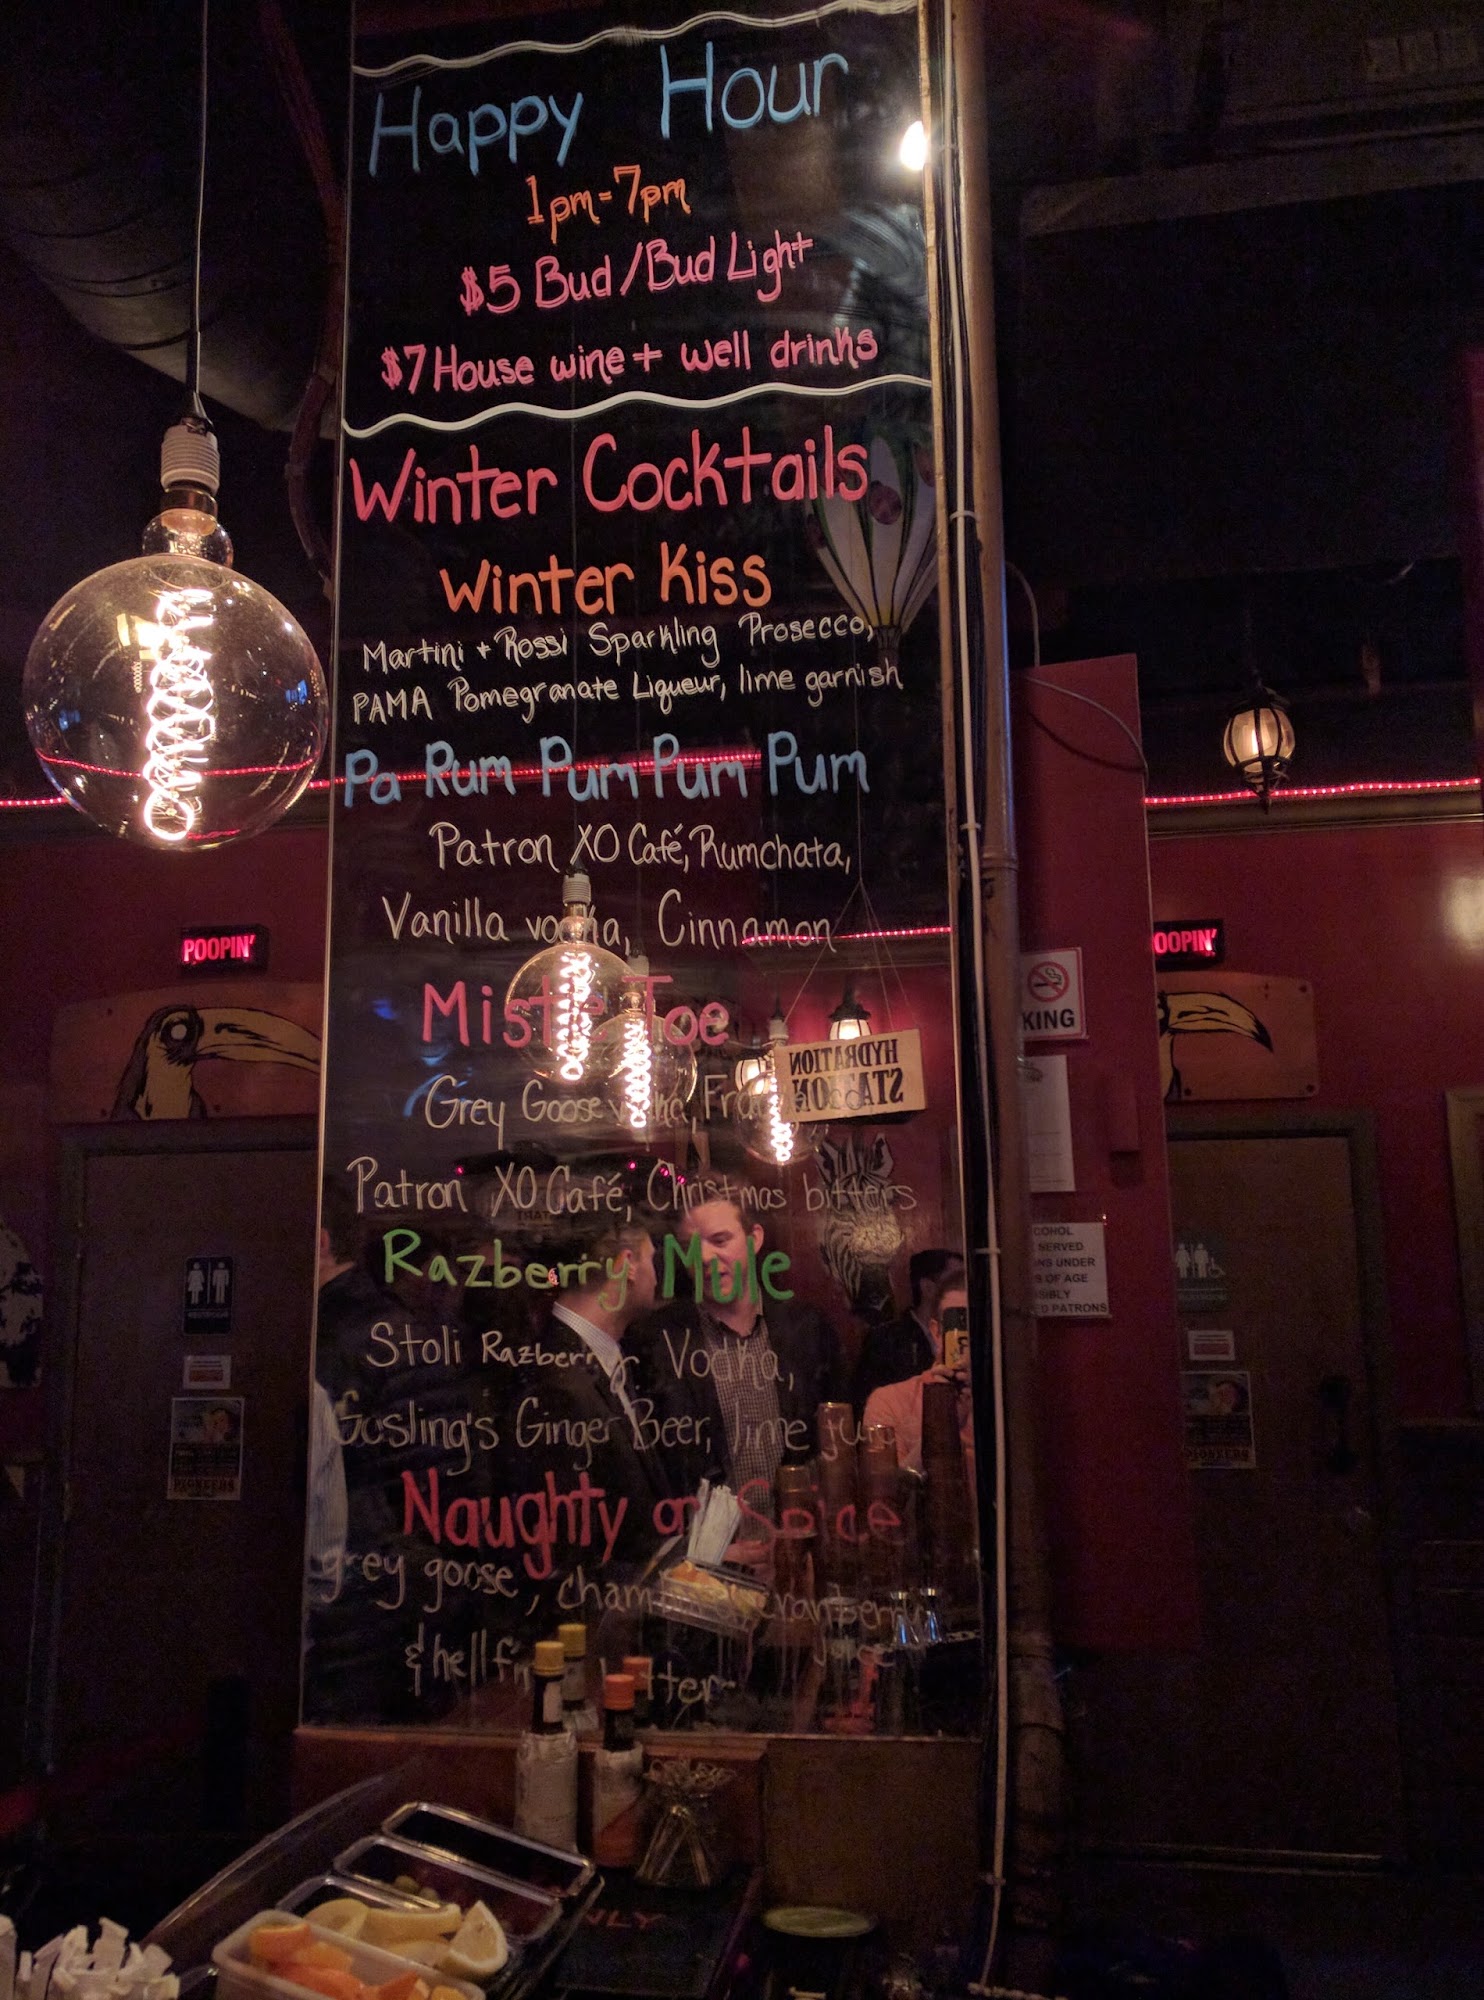 Happy Hour
1pm-7pm
$5 Bud/Bud Light
$7 House wine + well drinks
Winter Cocktails
Winter Kiss
Martini + Rossi Sparkling Prosecco,
PAMA Pomegranate Liqueur, lime garnish
Pa Rum Pum Pum Pum
Patron XO Café, Rumchata,
Vanilla vodka, Cinnamon
Mistle Toe
Grey Goose vodka,
Patron XO Café, Christmas bitters
Razberry Mule
Stoli Razberry Vodka,
Gosling's Ginger Beer, lime juice
Naughty or Spice
grey goose, cranberry
juice
& hellfire bitter
POOPIN'
OOPIN'
KING
HYDRATION
STATION
COHOL
SERVED
NS UNDER
S OF AGE
SIBLY
ED PATRONS
PIONEERS
NLY